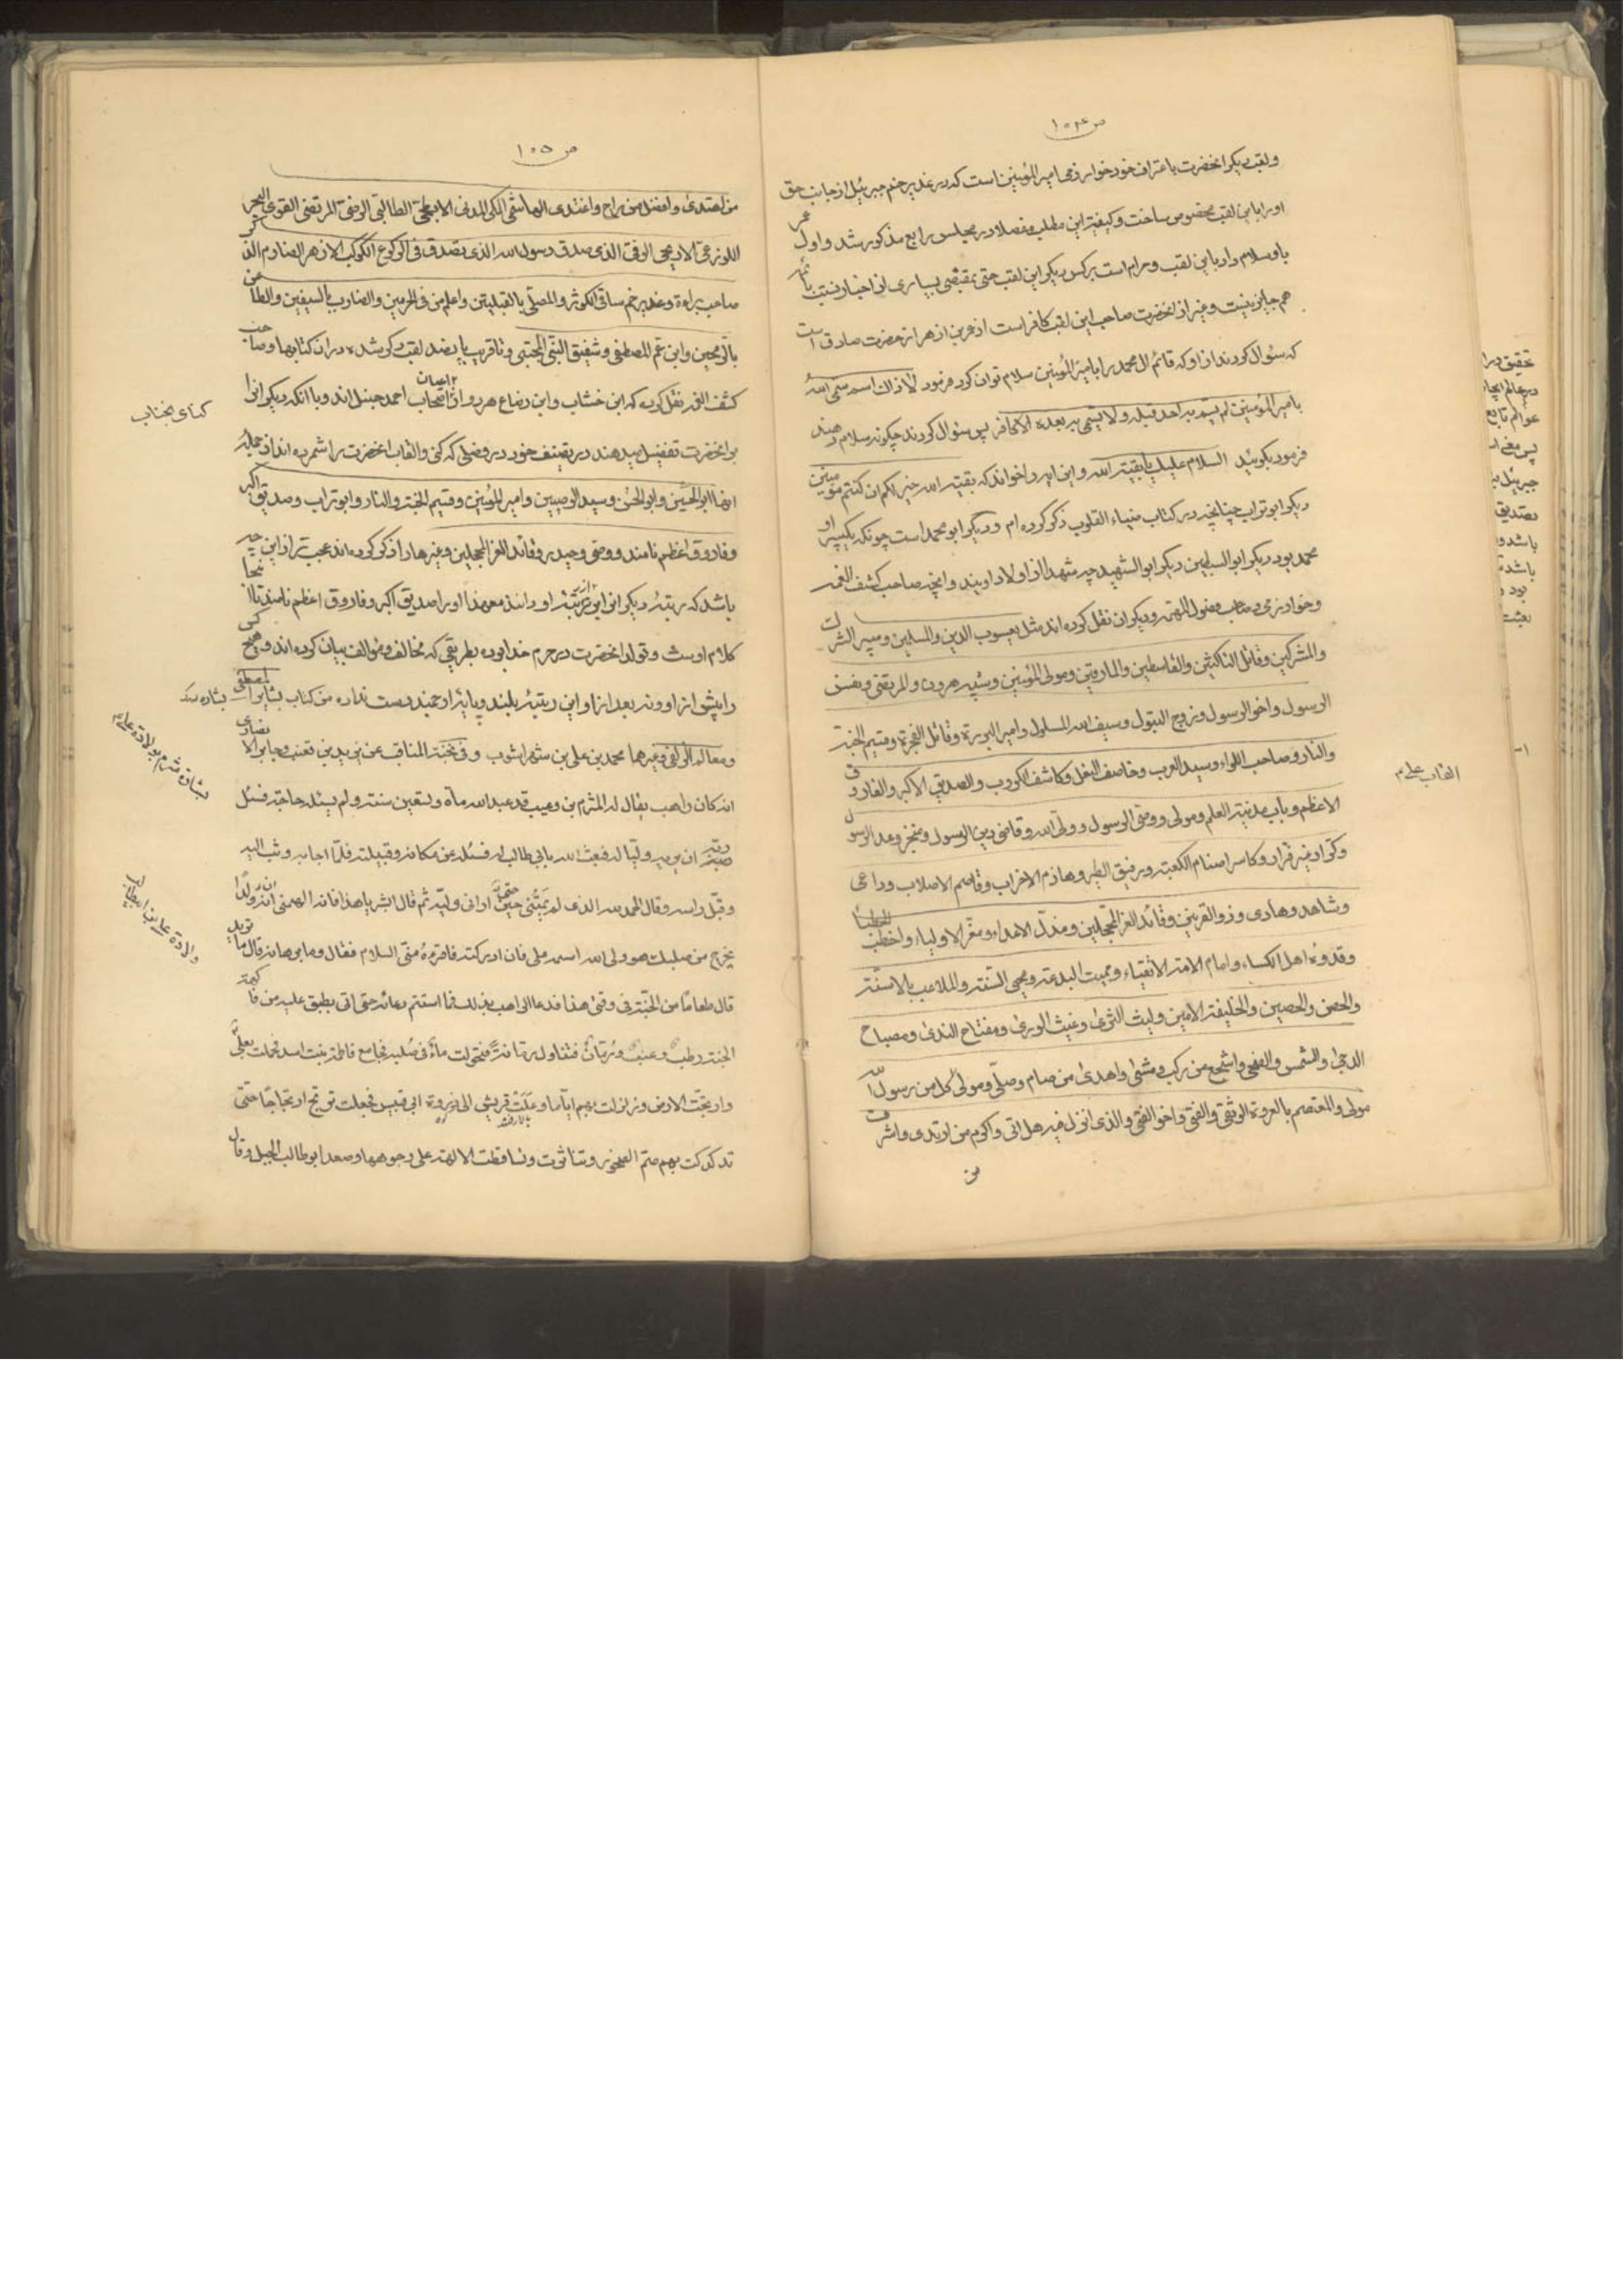 ص ١٠٤
ولقب دیکر انحضرت باعتراف خود خوارزمی امیر المؤمنین است که در غدیر خم جبرئیل از جانب حق
او را باین لقب مخصوص ساخت و کیفیة این مطلب مفصلا در مجلس رابع مذکور شد و اول
باو سلام داد باین لقب و حرام است بر کس دیکر این لقب حتی بمقتضی بسیاری از اخبار
هم جایز نیست و غیر از انحضرت صاحب این لقب کافر است از حضرت صادق
که سئوال کردند از او که قائم ال محمد را بامیر المؤمنین سلام توان کرد فرمود لا ذاك اسم سمی الله
بامیر المؤمنین لم یسم به احد قبله ولا یتسمی به بعده الا کافر پس سئوال کردند چکونه سلام دهند
فرمود بکوئید السلام علیك یا بقیة الله و این ایه را خواند که بقیة الله خیر لکم ان کنتم مؤمنین
دیکر ابوتراب چنانچه در کتاب ضیاء القلوب ذکر کرده ام و دیکر ابو محمد است چونکه یکپسر او
محمد بود دیکر ابو السبطین دیکر ابو الشهید چه شهدا از اولاد اویند و انچه صاحب کشف الغمه
وخوارزمی و صاحب فصول المهمه و دیکران نقل کرده اند مثل یعسوب الدین والمسلمین ومبیر الشرك
والمشرکین وقاتل الناکثین والقاسطین والمارقین ومولی المؤمنین وشبیه هرون والمرتضی ونفس
الرسول واخو الرسول وزوج البتول وسیف الله المسلول وامیر البررة وقاتل الفجرة وقسیم الجنة
والنار وصاحب اللواء وسید العرب وخاصف النعل وکاشف الکروب والصدیق الاکبر والفاروق
الاعظم وباب مدینة العلم ومولی ووصی الرسول وولی الله وقاضی دین الرسول ومنجز وعد الرسول
وکرار غیر فرار وکاسر اصنام الکعبة ورفیق الطیر وهازم الاحزاب وقاصم الاصلاب وداعی
وشاهد وهادی وذو القرنین وقائد الغر المحجلین ومذل الاعداء ومعز الاولیاء واخطب الخطباء
وقدوة اهل الکساء وامام الائمة الاتقیاء وممیت البدعة ومحیی السنة والملاعب بالاسنة
والحصن والحصین والخلیفة الامین ولیث الثری وغیث الوری ومفتاح الندی ومصباح
الدجی والشمس والضحی واشجع من رکب ومشی واهدی من صام وصلی ومولی کل من رسول الله
مولی والمعتصم بالعروة الوثقی والفتی واخو الفتی والذی انزل فیه هل اتی واکرم من ارتدی واشرف
من
القاب علی م
ص ١٠٥
من احتذی وافضل من راح واغتدی الهاشمی المکی المدنی الابطحی الطالبی الرضی المرتضی القوی الجری
اللوذعی الاریحی الوفی الذی صدق رسول الله الذی تصدق فی الرکوع الکوکب الازهر الصارم الذکر
صاحب براءة وغدیر خم ساقی الکوثر والمصلی بالقبلتین واعلم من فی الحرمین والضارب بالسیفین والطاعن
بالرمحین وابن عم المصطفی وشقیق النبی المجتبی وتا قریب بپانصد لقب ذکر شده در ان کتابها وصاحب
کشف الغمه نقل کرده که ابن خشاب وابن وضاع هر دو از اصحاب احمد حنبل اند وبا انکه دیکرانرا
بر انحضرت تفضیل میدهند در تصنیف خود در فصلی که کنی والقاب انحضرت را شمرده اند از جمله
انها ابو الحسین وابو الحسن وسید الوصیین وامیر المؤمنین وقسیم الجنة والنار وابو تراب وصدیق اکبر
وفاروق اعظم نامند ووصی وحیدر وقائد الغر المحجلین وغیرها را ذکر کرده اند عجب تر از این چه
باشد که رتبه دیکرانرا از رتبه او دانند معهذا او را صدیق اکبر وفاروق اعظم نامند تا اینجا
کلام اوست وتولد انحضرت در حرم خدا بوده بطریقی که مخالف ومؤالف بیان کرده اند وهیچ کس
را پیش از او ونه بعد از او این رتبه بلند وپایه ارجمند دست نداده من کتاب بشایر المصطفی
ومعالم الزلفی وغیرهما محمد بن علی بن شهر اشوب وفی نخبة المناقب عن یزید بن قعنب وجابر الانصاری
انه کان راهب یقال له المثرم بن دعیب قد عبد الله مأة وتسعین سنة ولم یسئله حاجة فسئل
ربه ان یریه ولیا له فبعث الله بابی طالب الیه فسئله عن مکانه وقبیلته فلما اجابه وثب الیه
وقبل راسه وقال الحمد لله الذی لم یمتنی حتی ارانی ولیه ثم قال ابشر یا هذا فان الله الهمنی ان ولدا
یخرج من صلبك هو ولی الله اسمه علی فان ادرکته فاقرءه منی السلام فقال وما برهانه قال ما ترید
قال طعاما من الجنة فی وقتی هذا فدعا الراهب بذلك فما استتم دعائه حتی اتی بطبق علیه من فاکهة
الجنة رطب وعنب ورمان فتناول رمانة فتحولت مآء فی صلبه فجامع فاطمة بنت اسد فحملت بعلی
وارتجت الارض وزلزلت بهم ایاما وعلت قریش الی ذروة ابی قبیس فجعلت ترتج ارتجاجا حتی
تدکدکت بهم صم الصخور وتناثرت وتساقطت الالهة علی وجوهها وصعد ابو طالب الجبل وقال
کنای انجناب
بشارة مثرم بولادة علی م
ولادة علی بن ابیطالب